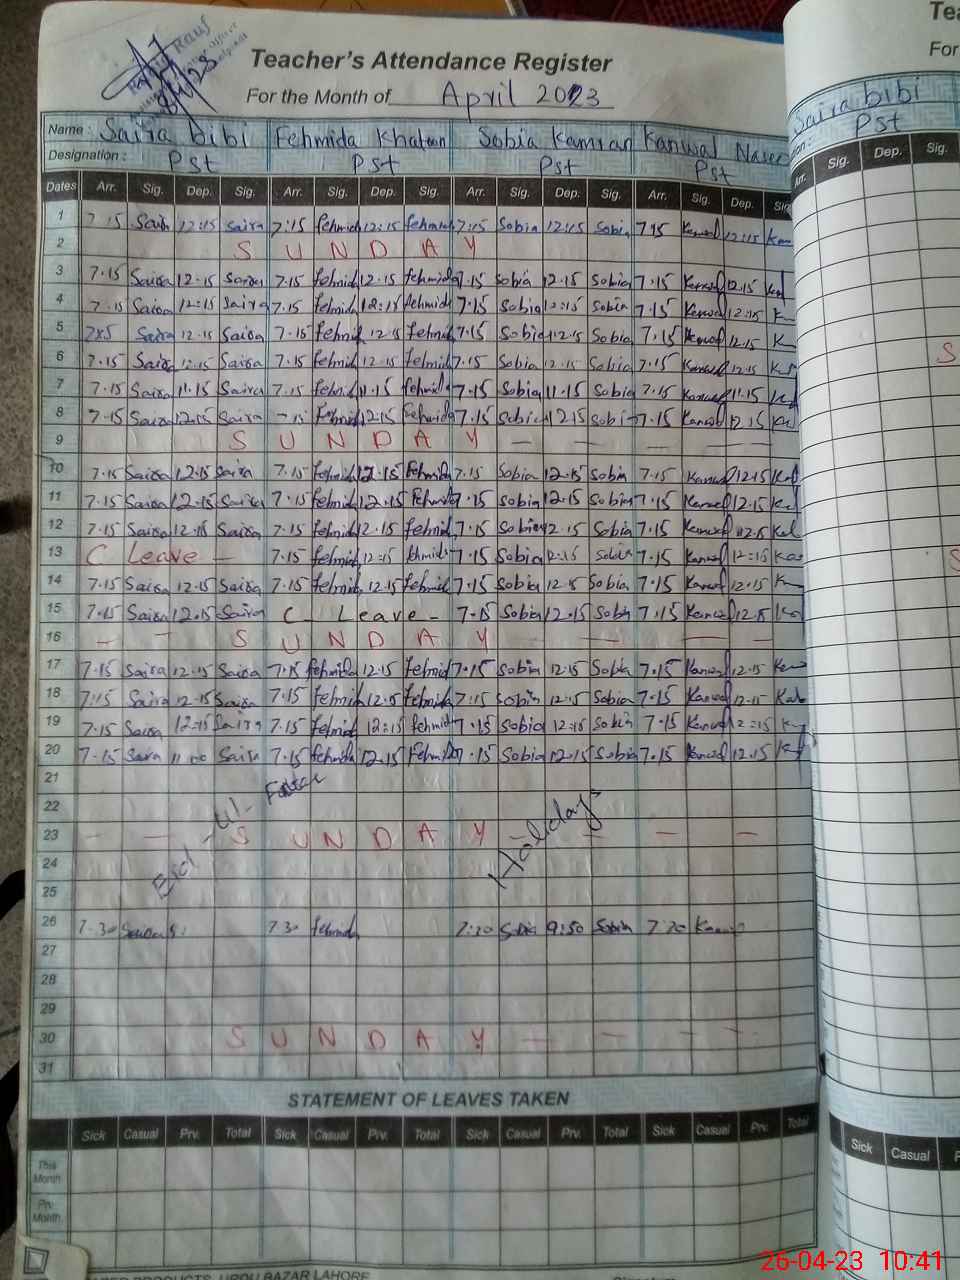 Teacher's Attendance Register
For the Month of April 2023
Name : Saira bibi Fehmida Khatoon Sobia Kamran Kanwal Naseer
Designation : Pst Pst Pst Pst
Dates Arr. Sig. Dep. Sig. Arr. Sig. Dep. Sig. Arr. Sig. Dep. Sig. Arr. Sig. Dep. Sig
1 7.15 Saira 12:15 Saira 7:15 fehmid 12:15 fehmid 7:15 Sobia 12:15 Sobia 7.15 Kanwal 12:15
2 S U N D A Y
3 7.15 Saira 12.15 Saira 7.15 fehmid 12.15 fehmida 7.15 Sobia 12.15 Sobia 7.15 Kanwal 12.15
4 7.15 Saira 12:15 Saira 7.15 fehmid 12:15 fehmida 7.15 Sobia 12:15 Sobia 7.15 Kanwal 12:15
5 Saira 12.15 Saira 7.15 fehmid 12.15 fehmid 7.15 Sobia 12.15 Sobia 7.15 Kanwal 12.15
6 7.15 Saira 12.15 Saira 7.15 fehmid 12.15 fehmid 7.15 Sobia 12.15 Sobia 7.15 Kanwal 12.15
7 7.15 Saira 11.15 Saira 7.15 fehmid 11.15 fehmida 7.15 Sobia 11.15 Sobia 7.15 Kanwal 11.15
8 7.15 Saira 12.15 Saira Fehmid 12.15 Fehmida 7.15 Sobia 12.15 Sobia 7.15 Kanwal 12.15
9 S U N D A Y — — — — — —
10 7.15 Saira 12.15 Saira 7.15 fehmid 12.15 Fehmida 7.15 Sobia 12.15 Sobia 7.15 Kanwal 12.15
11 7.15 Saira 12.15 Saira 7.15 fehmid 12.15 Fehmida 7.15 Sobia 12.15 Sobia 7.15 Kanwal 12.15
12 7.15 Saira 12.15 Saira 7.15 fehmid 12.15 fehmid 7.15 Sobia 12.15 Sobia 7.15 Kanwal
13 C Leave — 7.15 fehmid 12:15 fehmida 7.15 Sobia 12:15 Sobia 7.15 Kanwal 12:15
14 7.15 Saira 12.15 Saira 7.15 fehmid 12.15 fehmid 7.15 Sobia 12.15 Sobia 7.15 Kanwal 12.15
15 7.15 Saira 12.15 Saira C Leave - 7.15 Sobia 12.15 Sobia 7.15 Kanwal 12.15
16 — — S U N D A Y — — — —
17 7.15 Saira 12.15 Saira 7.15 fehmida 12.15 Fehmid 7.15 Sobia 12.15 Sobia 7.15 Kanwal 12.15
18 7:15 Saira 12.15 Saira 7.15 fehmid 12.15 fehmida 7:15 Sobia 12:15 Sobia 7.15 Kanwal 12.15
19 7.15 Saira 12:15 Saira 7.15 fehmid 12:15 fehmid 7.15 Sobia 12:15 Sobia 7.15 Kanwal 12:15
20 7.15 Saira 11:00 Saira 7.15 fehmida 12.15 Fehmida 7.15 Sobia 12.15 Sobia 7.15 Kanwal 12.15
21
22
Eid - ul - Holidays
23 — — S U N D A Y — — — —
24
25
26 7.30 Saira 7.30 fehmid Sobia 9:50 Sobia
27
28
29
30 S U N D A Y — — — —
31
STATEMENT OF LEAVES TAKEN
Sick Casual Prv. Total Sick Casual Prv. Total Sick Casual Prv. Total Sick Casual Prv. Total
This Month
Prv. Month
PRODUCTS, URDU BAZAR LAHORE
Tea
For
Saira bibi
Pst
Arr. Sig. Dep. Sig.
S
S
Sick Casual
26-04-23 10:41